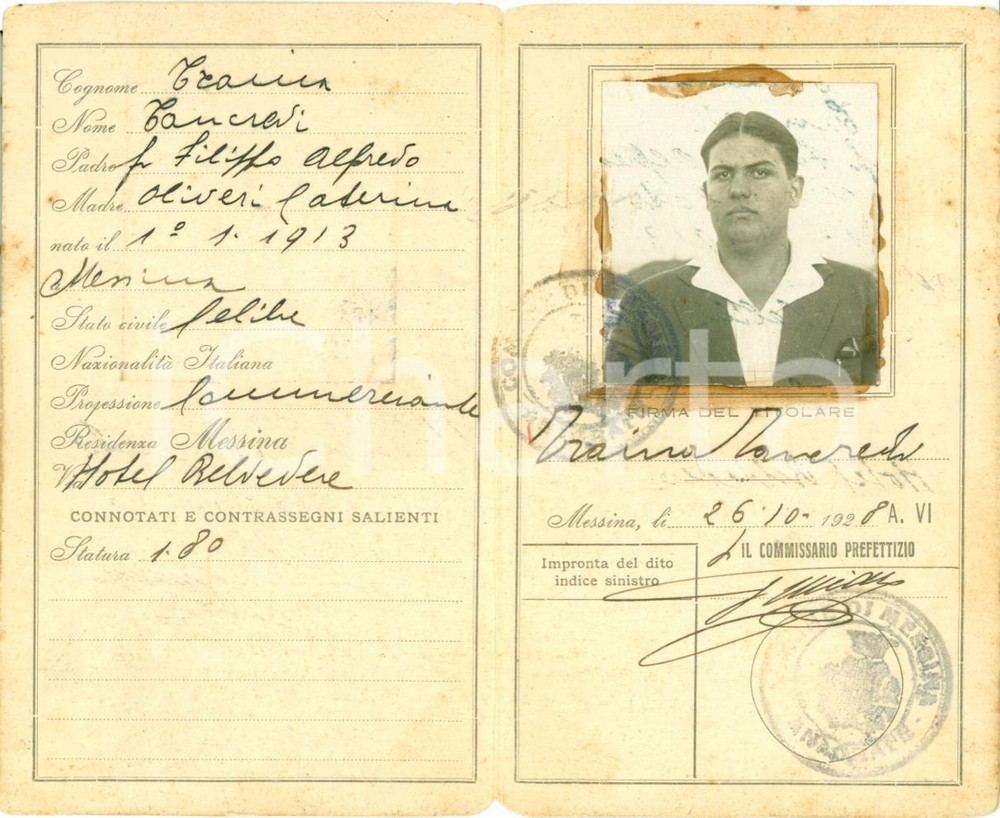 Cognome Traina
Nome Tancredi
Padre fu Filippo Alfredo
Madre Oliveri Caterina
nato il 1° 1. 1913
a Messina
Stato civile Celibe
Nazionalità Italiana
Professione Commerciante
Residenza Messina
Via Hotel Belvedere
CONNOTATI E CONTRASSEGNI SALIENTI
Statura 1.80
FIRMA DEL TITOLARE
Traina Tancredi
Messina, li 26.10.1928 A. VI
IL COMMISSARIO PREFETTIZIO
Impronta del dito
indice sinistro
DI MESSINA
Charta